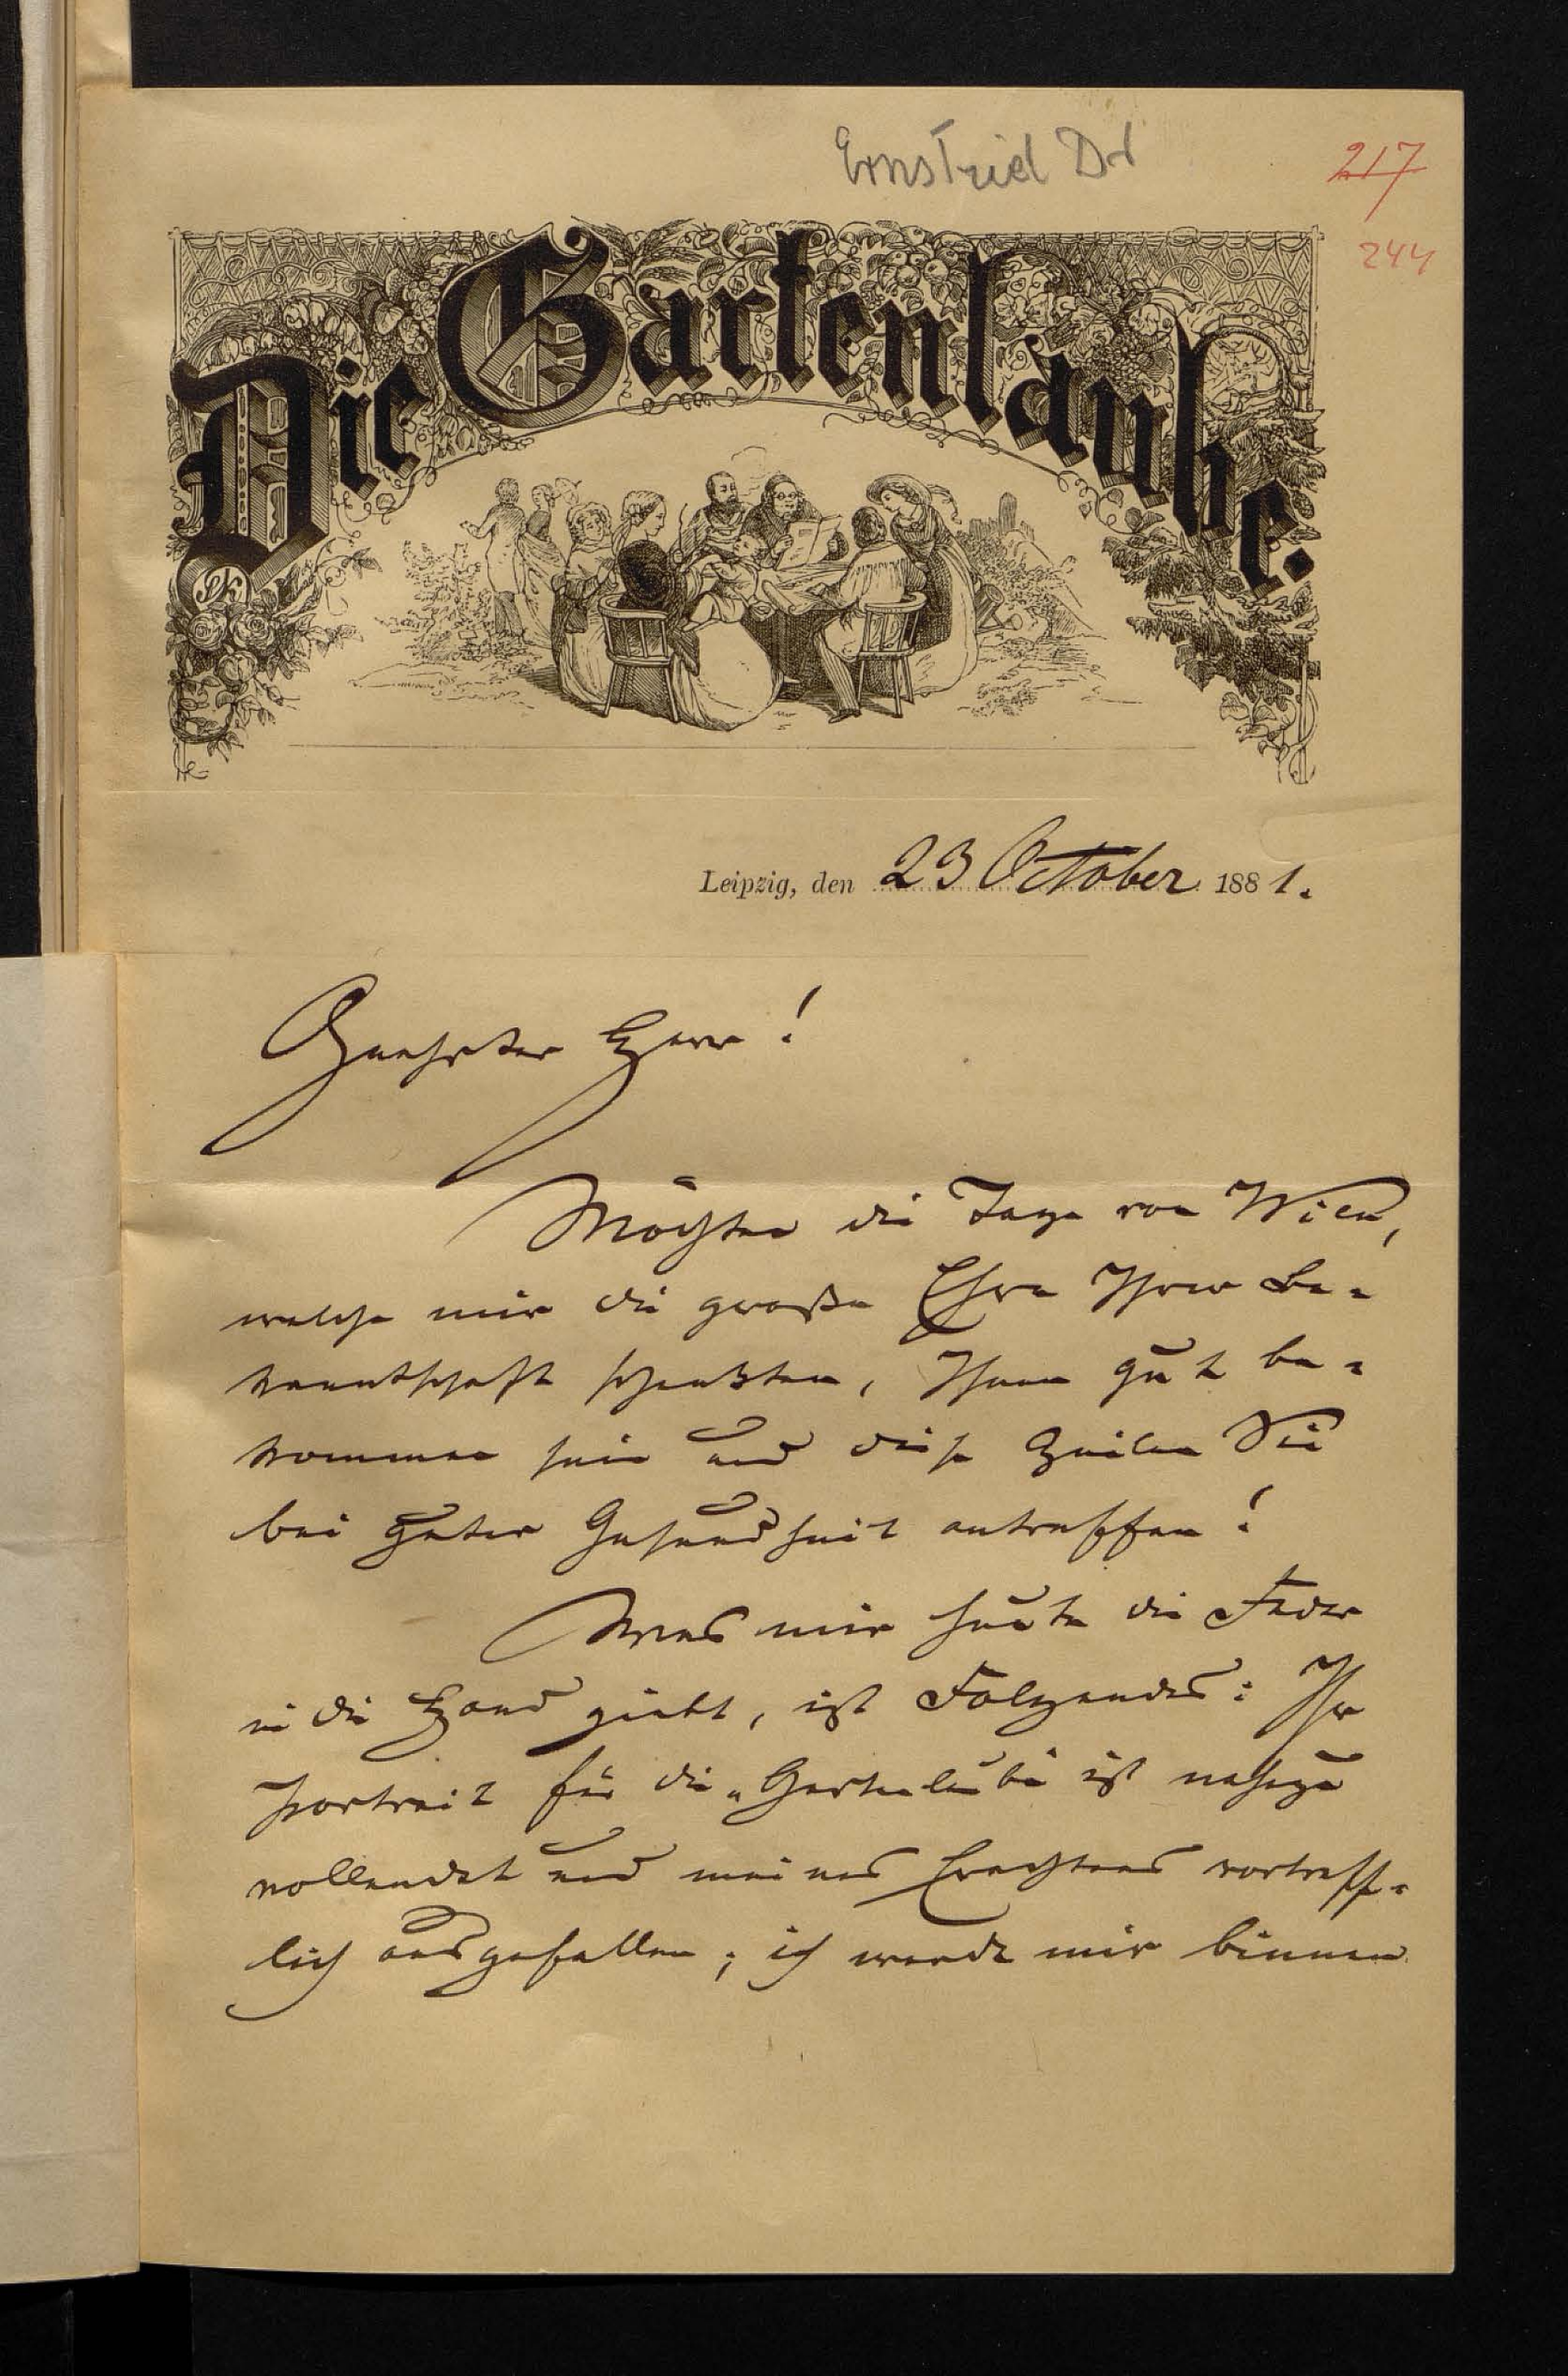 Ernst Ziel Dr
217
244
Die Gartenlaube.
Leipzig, den 23 October 1881.
Geehrter Herr!
Möchten die Tage von Wien,
welche mir die große Ehre Ihrer Be-
kanntschaft schenkten, Ihnen gut be-
kommen sein und diese Zeilen Sie
bei guter Gesundheit antreffen!
Was mir heute die Feder
in die Hand giebt, ist Folgendes: Ihr
Portrait für die „Gartenlaube ist nahezu
vollendet und meines Erachtens vortreff-
lich ausgefallen; ich werde mir binnen